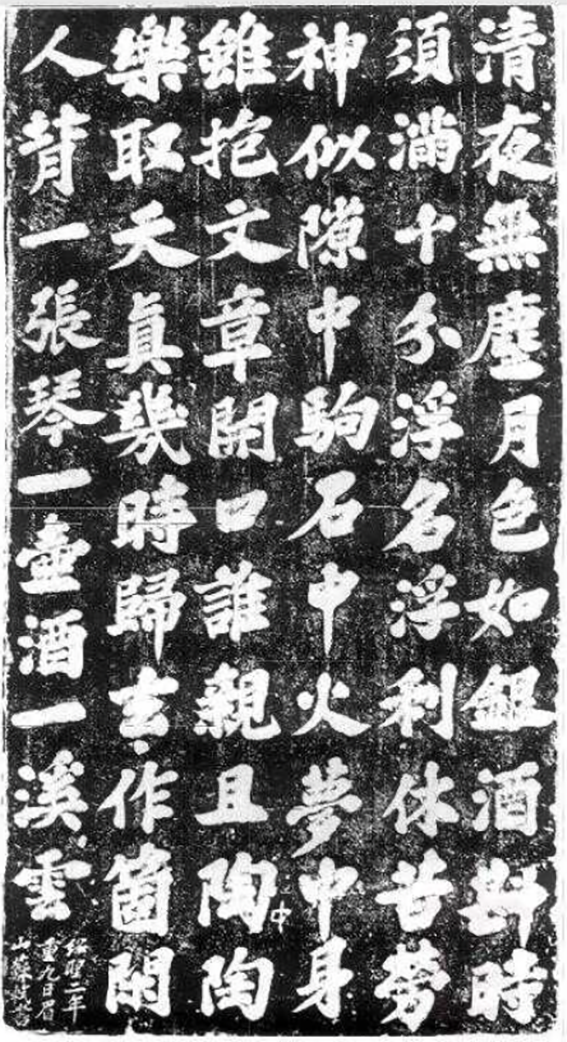 清夜無塵月色如銀酒斟時
須滿十分浮名浮利休苦勞
神似隙中駒石中火夢中身
中
雖抱文章開口誰親且陶陶
樂取天真幾時歸去作箇閑
人背一張琴一壺酒一溪雲
紹聖二年
重九日眉
山蘇軾書